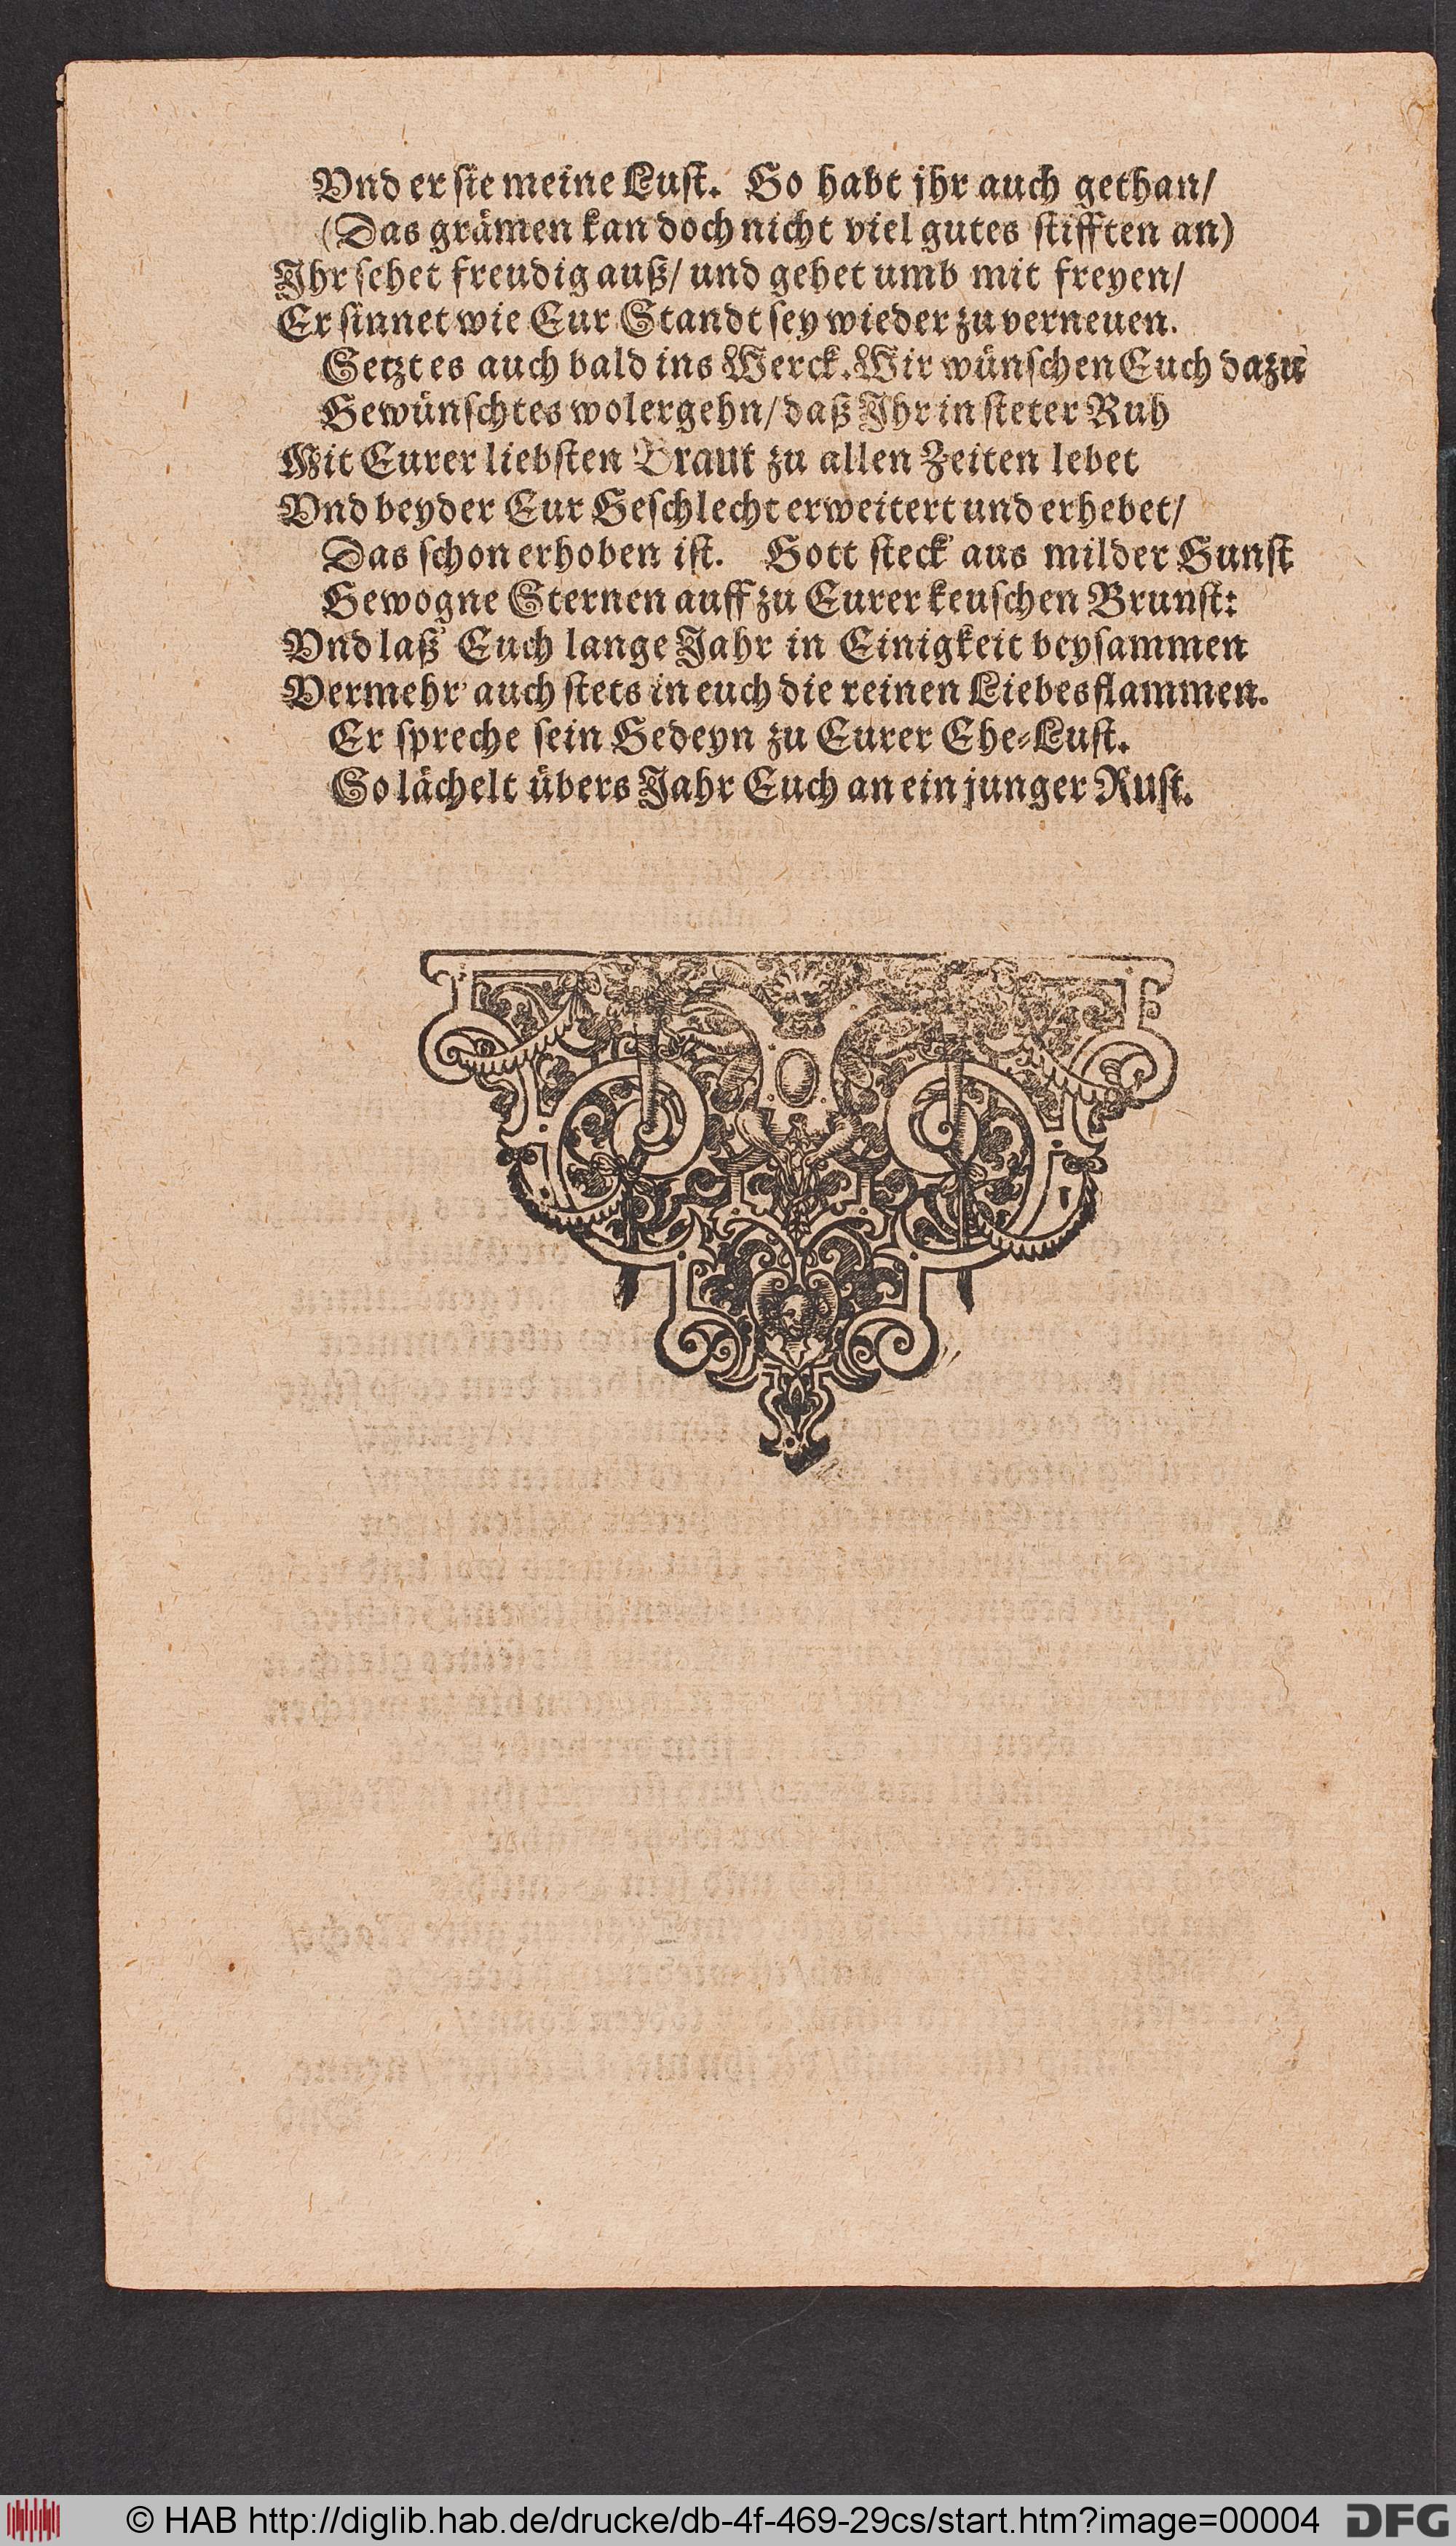 Vnd er sie meine Lust. So habt jhr auch gethan/
(Das grämen kan doch nicht viel gutes stifften an)
Ihr sehet freudig auß/ und gehet umb mit freyen/
Er sinnet wie Eur Standt sey wieder zu verneuen.
Setzt es auch bald ins Werck. Wir wünschen Euch dazu
Gewünschtes wolergehn/ daß Ihr in steter Ruh
Mit Eurer liebsten Braut zu allen Zeiten lebet
Vnd beyder Eur Geschlecht erweitert und erhebet/
Das schon erhoben ist. Gott steck' aus milder Gunst
Gewogne Sternen auff zu Eurer keuschen Brunst:
Vnd laß' Euch lange Jahr in Einigkeit beysammen
Vermehr' auch stets in euch die reinen Liebesflammen.
Er spreche sein Gedeyn zu Eurer Ehe-Lust.
So lächelt übers Jahr Euch an ein junger Rust.
© HAB http://diglib.hab.de/drucke/db-4f-469-29cs/start.htm?image=00004
DFG